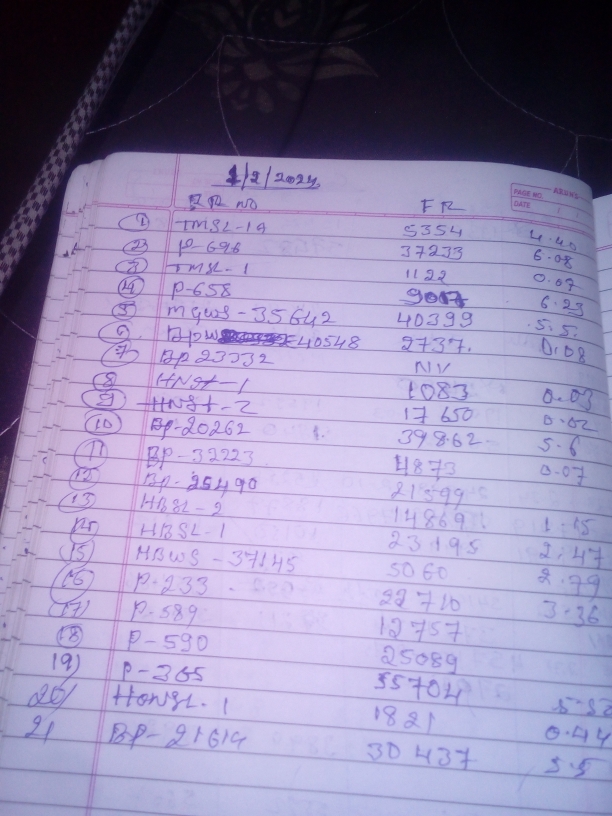 PAGE NO.
DATE
1/2/2024
RR NO FR
① TMSL-19 5354 4.40
② P-696 37233 6.08
③ TMSL-1 1122 0.07
④ P-658 9017 6.23
⑤ MGWS-35642 40399 5.5.
⑥ BPW 40548 2737. 0.08
⑦ BP 23332 NV
⑧ HNST-1 1083 0.03
⑨ HNST-2 17650 0.02
⑩ BP-20262 39862 5.6
⑪ BP-32223 4873 0.07
⑫ BP-25490 21399
⑬ HBSL-2 14869 1.15
HBSL-1 23195 2.47
⑮ HBWS-37145 5060 2.79
⑯ P-233 22710 3.36
⑰ P-589 12757
⑱ P-590 25089
19) P-365 55704
20) HONSL-1 1821 0.44
21 BP-21619 30437 5.5